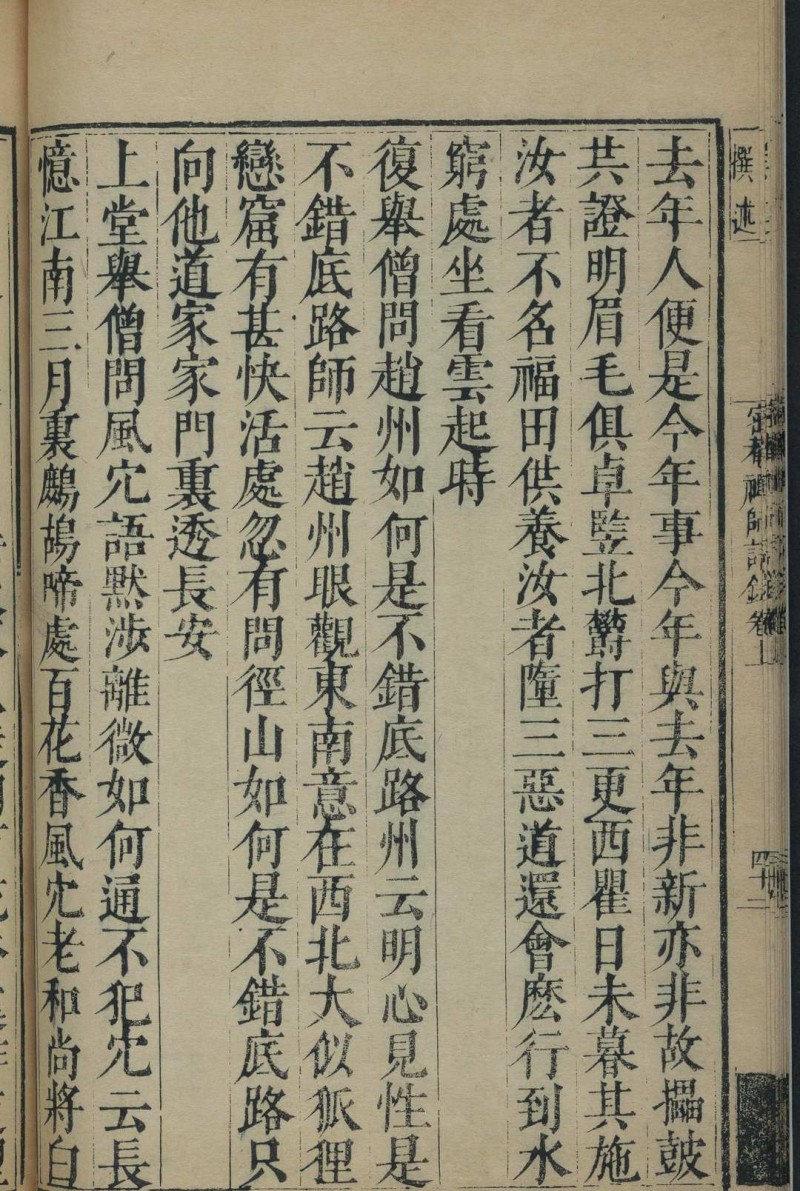 去年人便是今年事今年與去年非新亦非故攂鼓
共證明眉毛俱卓豎北欝打三更西瞿日未暮其施
汝者不名福田供養汝者墮三惡道還會麽行到水
窮處坐看雲起時
復舉僧問趙州如何是不錯底路州云明心見性是
不錯底路師云趙州眼觀東南意在西北大似狐狸
戀窟有甚快活處忽有問徑山如何是不錯底路只
向他道家家門裏透長安
上堂舉僧問風穴語默涉離微如何通不犯穴云長
憶江南三月裏鷓鴣啼處百花香風穴老和尚將白
撰述
禪師語錄卷上